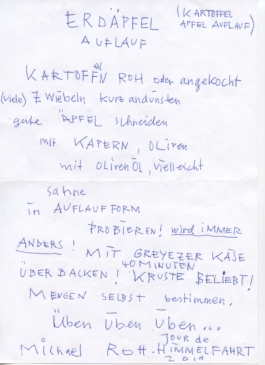 ERDÄPFEL (KARTOFFEL
AUFLAUF APFEL AUFLAUF)
KARTOFFELN ROH oder angekocht
(viele) ZWiebeln kurz andünsten
gute ÄPFEL schneiden
mit KAPERN, OLIVEN
mit OLIVEN ÖL, vielleicht
Sahne
in AUFLAUFFORM
PROBIEREN! wird IMMER
ANDERS! MIT GREYEZER KÄSE
40 MINUTEN
ÜBERBACKEN! KRUSTE BELIEBT!
MENGEN SELBST bestimmen.
Üben Üben Üben...
JOUR de
Michael Rott. HIMMELFAHRT
2019